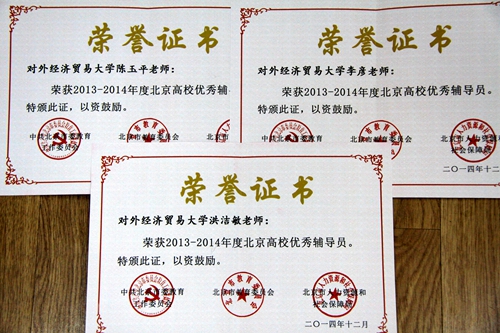 荣誉证书
对外经济贸易大学陈玉平老师：
荣获2013-2014年度北京高校优秀辅
特颁此证，以资鼓励。
中共北京市委教育
工作委员会
北京市教育委员会
荣誉证书
对外经济贸易大学李彦老师：
荣获2013-2014年度北京高校优秀辅导员。
特颁此证，以资鼓励。
北京市教育委员会
北京市人力资源和
社会保障局
二〇一四年十二
荣誉证书
对外经济贸易大学洪洁敏老师：
荣获2013-2014年度北京高校优秀辅导员。
特颁此证，以资鼓励。
中共北京市委教育
工作委员会
北京市教育委员会
北京市人力资源和
社会保障局
二〇一四年十二月